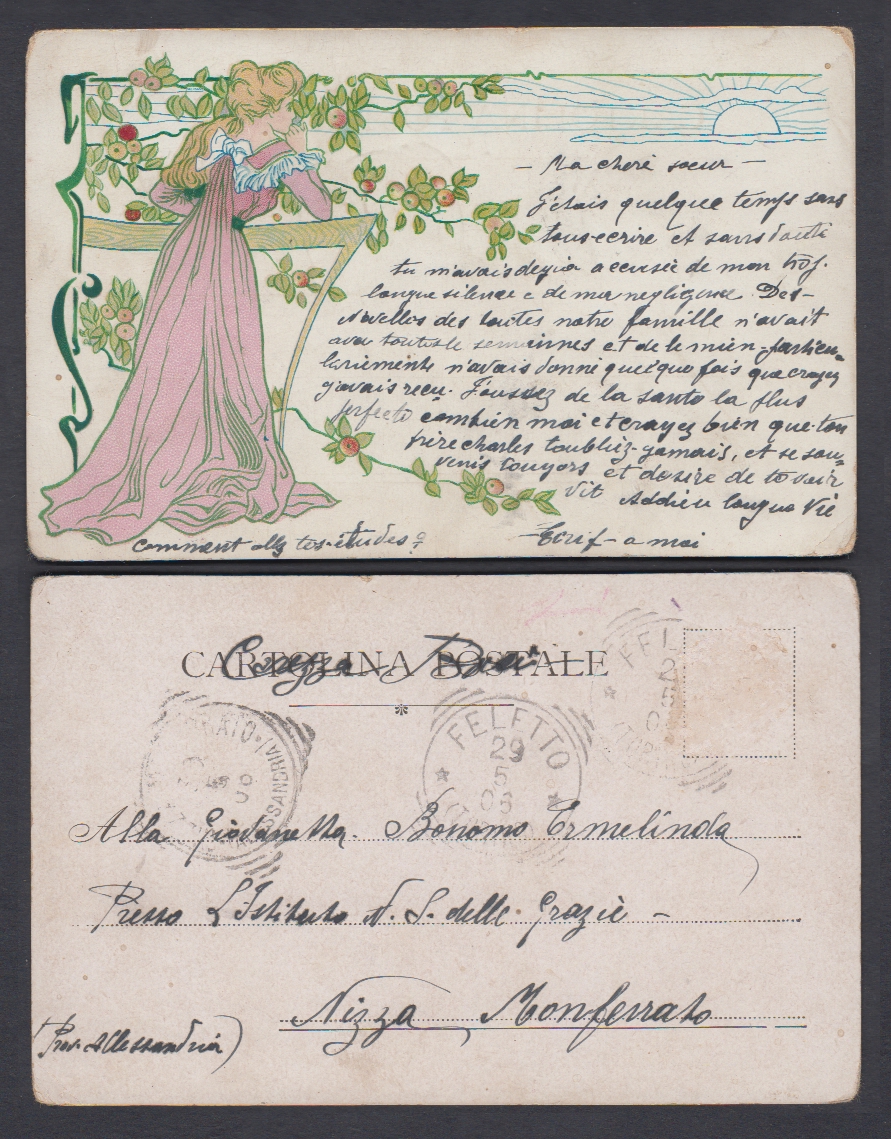 - Ma cherè sœur -
J'etais quelque temps sans
tous-ecrire et sans doute
tu m'avais degia accusèe de mon trop.
longue silence e de ma negligence. Des-
Novelles des toutes notre famille n'avait
avoi toutes le semainnes et de le mien-particu=
lariement n'avais donnè quelquo fois que crayez
j'avais reçu. Joussez de la santo la plus
perfecte combien moi et crayez bien que-ton
frire charles toubliez-gamais, et se sou=
venis toujors et desire de to voir
vit Addieu longue Vie
Comment allez tes-études? -Ecrif-a moi
CARTOLINA POSTALE
FELETTO
29
5
03
FEL
2
5
0
RATO
ALESSANDRIA
Alla Giovanetta. Bonomo Ermelinda
Presso L'Istituto N. S. delle Grazie -
Nizza Monferrato
(Prov. Alessandria)